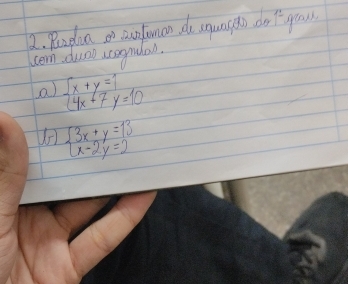 2. Resolva os sistemas de equações do 1º grau
com duas incógnitas.
a) { x + y = 1
4x + 7y = 10
b) { 3x + y = 13
x - 2y = 2